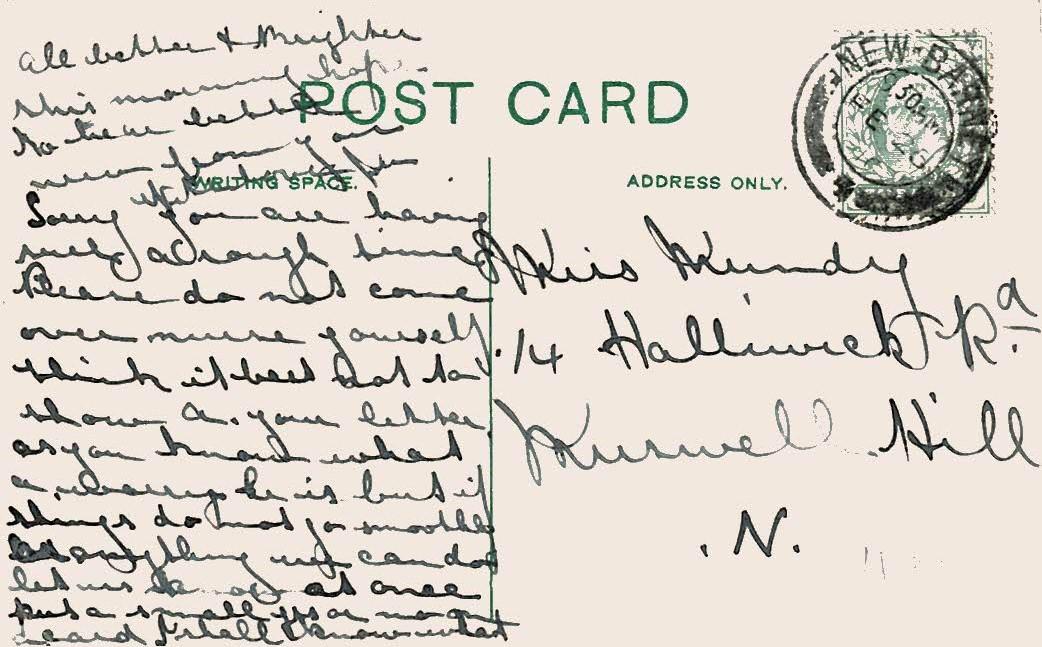 All better & brighter
this morning hope
to hear better
news from you
with love from
POST CARD
WRITING SPACE.
ADDRESS ONLY.
NEW-BARNET
Sorry you are having
such a rough time
Please do not come
over nurse yourself
think it best not to
show A. your letter
as you know what
a worry he is but if
things do not go smoothly
anything we can do
let us know at once
put a small yes or no on
card I shall know what
Miss Mundy
14 Halliwick Rd
Muswell Hill
.N.